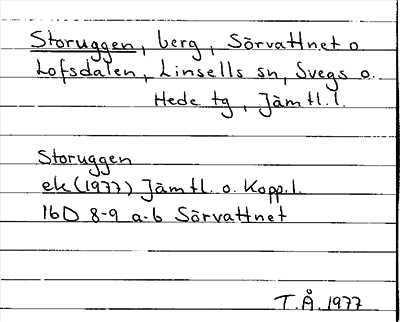 Storuggen, berg, Sörvattnet o
Lofsdalen, Linsells sn, Svegs o.
Hede tg, Jämtl. l.
Storuggen
ek (1977) Jämtl. o. Kopp. l.
16D 8-9 a-b Sörvattnet
T.Å. 1977